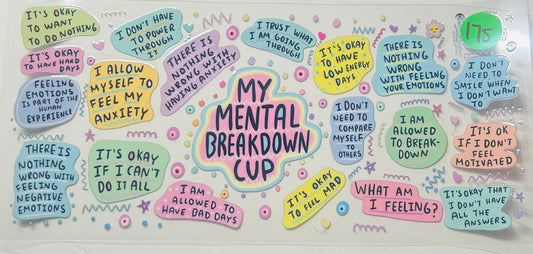 IT'S OKAY
TO WANT
TO DO NOTHING
I DON'T HAVE
TO POWER
THROUGH
IT
I TRUST WHAT
I AM GOING
THROUGH
175
IT'S OKAY
TO HAVE HARD
DAYS
THERE IS
NOTHING
WRONG WITH
HAVING ANXIETY
IT'S OKAY
TO HAVE
LOW ENERGY
DAYS
THERE IS
NOTHING
WRONG
WITH FEELING
YOUR EMOTIONS
I DON'T
NEED TO
SMILE WHEN
I DON'T WANT
TO
FEELING
EMOTIONS
IS PART OF THE
HUMAN
EXPERIENCE
I ALLOW
MYSELF TO
FEEL MY
ANXIETY
MY
MENTAL
BREAKDOWN
CUP
I DON'T
NEED TO
COMPARE
MYSELF
TO
OTHERS
I AM
ALLOWED
TO BREAK-
DOWN
IT'S OK
IF I DON'T
FEEL
MOTIVATED
THERE IS
NOTHING
WRONG WITH
FEELING
NEGATIVE
EMOTIONS
IT'S OKAY
IF I CAN'T
DO IT ALL
I AM
ALLOWED TO
HAVE BAD DAYS
IT'S OKAY
TO FEEL MAD
WHAT AM
I FEELING?
IT'S OKAY THAT
I DON'T HAVE
ALL THE
ANSWERS